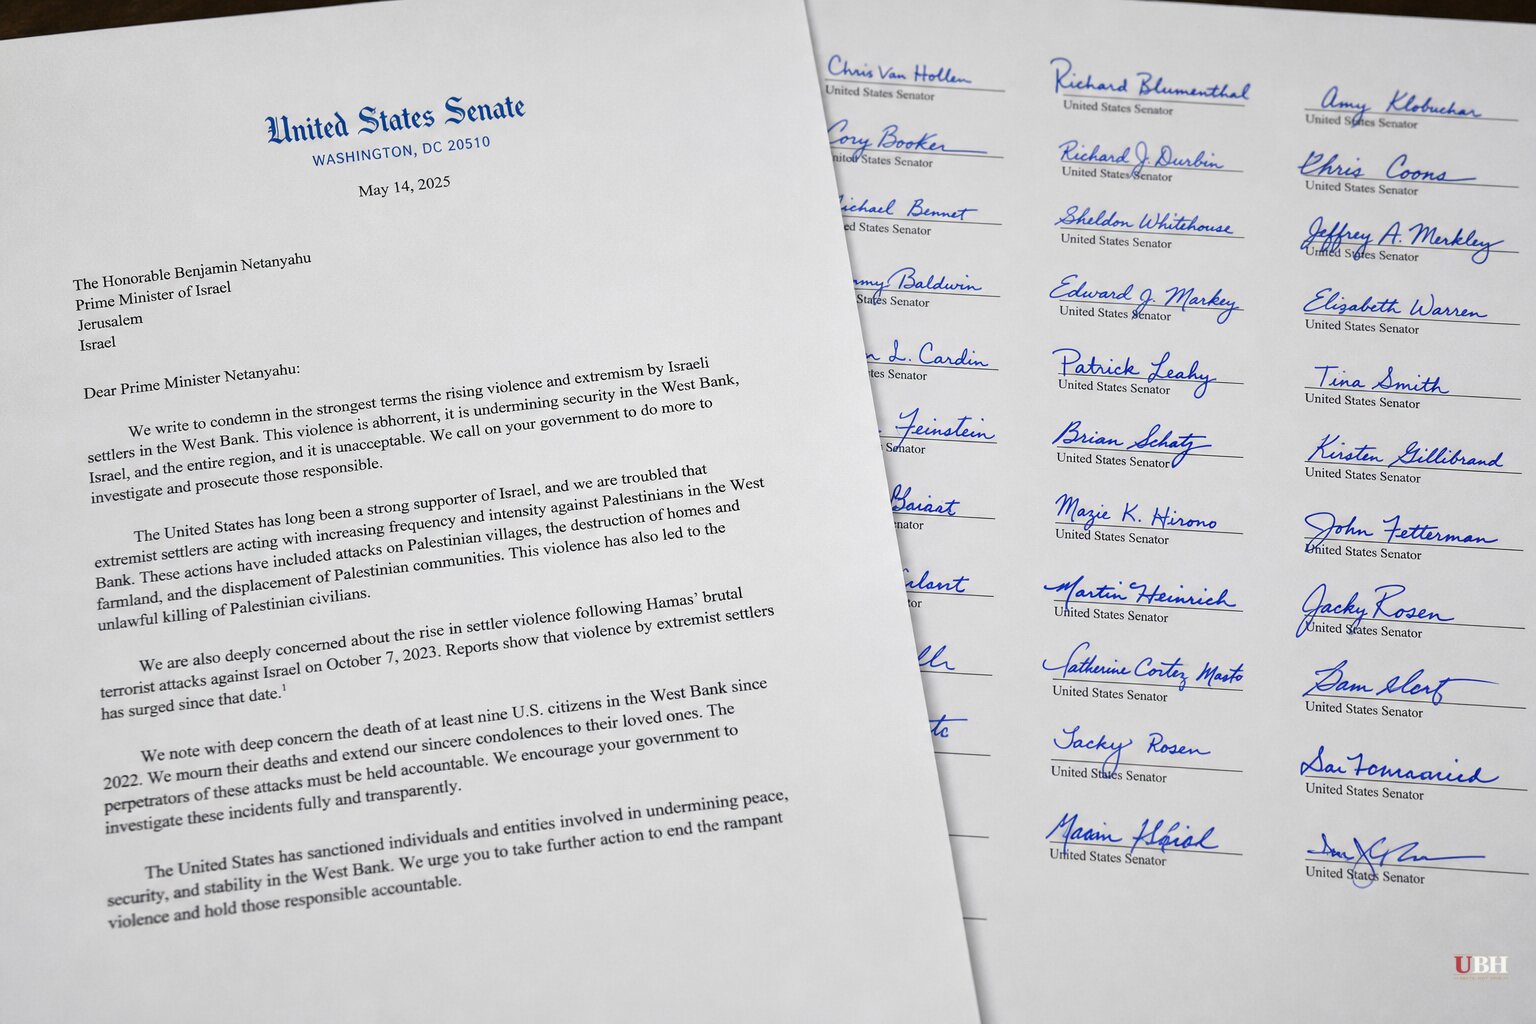 United States Senate
WASHINGTON, DC 20510
May 14, 2025
The Honorable Benjamin Netanyahu
Prime Minister of Israel
Jerusalem
Israel
Dear Prime Minister Netanyahu:
We write to condemn in the strongest terms the rising violence and extremism by Israeli
settlers in the West Bank. This violence is abhorrent, it is undermining security in the West Bank,
Israel, and the entire region, and it is unacceptable. We call on your government to do more to
investigate and prosecute those responsible.
The United States has long been a strong supporter of Israel, and we are troubled that
extremist settlers are acting with increasing frequency and intensity against Palestinians in the West
Bank. These actions have included attacks on Palestinian villages, the destruction of homes and
farmland, and the displacement of Palestinian communities. This violence has also led to the
unlawful killing of Palestinian civilians.
We are also deeply concerned about the rise in settler violence following Hamas’ brutal
terrorist attacks against Israel on October 7, 2023. Reports show that violence by extremist settlers
has surged since that date.1
We note with deep concern the death of at least nine U.S. citizens in the West Bank since
2022. We mourn their deaths and extend our sincere condolences to their loved ones. The
perpetrators of these attacks must be held accountable. We encourage your government to
investigate these incidents fully and transparently.
The United States has sanctioned individuals and entities involved in undermining peace,
security, and stability in the West Bank. We urge you to take further action to end the rampant
violence and hold those responsible accountable.
Chris Van Hollen
United States Senator
Cory Booker
United States Senator
ichael Bennet
ed States Senator
my Baldwin
States Senator
L. Cardin
tes Senator
Feinstein
Senator
enator
tor
Richard Blumenthal
United States Senator
Richard J. Durbin
United States Senator
Sheldon Whitehouse
United States Senator
Edward J. Markey
United States Senator
Patrick Leahy
United States Senator
Brian Schatz
United States Senator
Mazie K. Hirono
United States Senator
Martin Heinrich
United States Senator
Catherine Cortez Masto
United States Senator
Jacky Rosen
United States Senator
United States Senator
Amy Klobuchar
United States Senator
Chris Coons
United States Senator
Jeffrey A. Merkley
United States Senator
Elizabeth Warren
United States Senator
Tina Smith
United States Senator
Kirsten Gillibrand
United States Senator
John Fetterman
United States Senator
Jacky Rosen
United States Senator
United States Senator
United States Senator
United States Senator
UBH